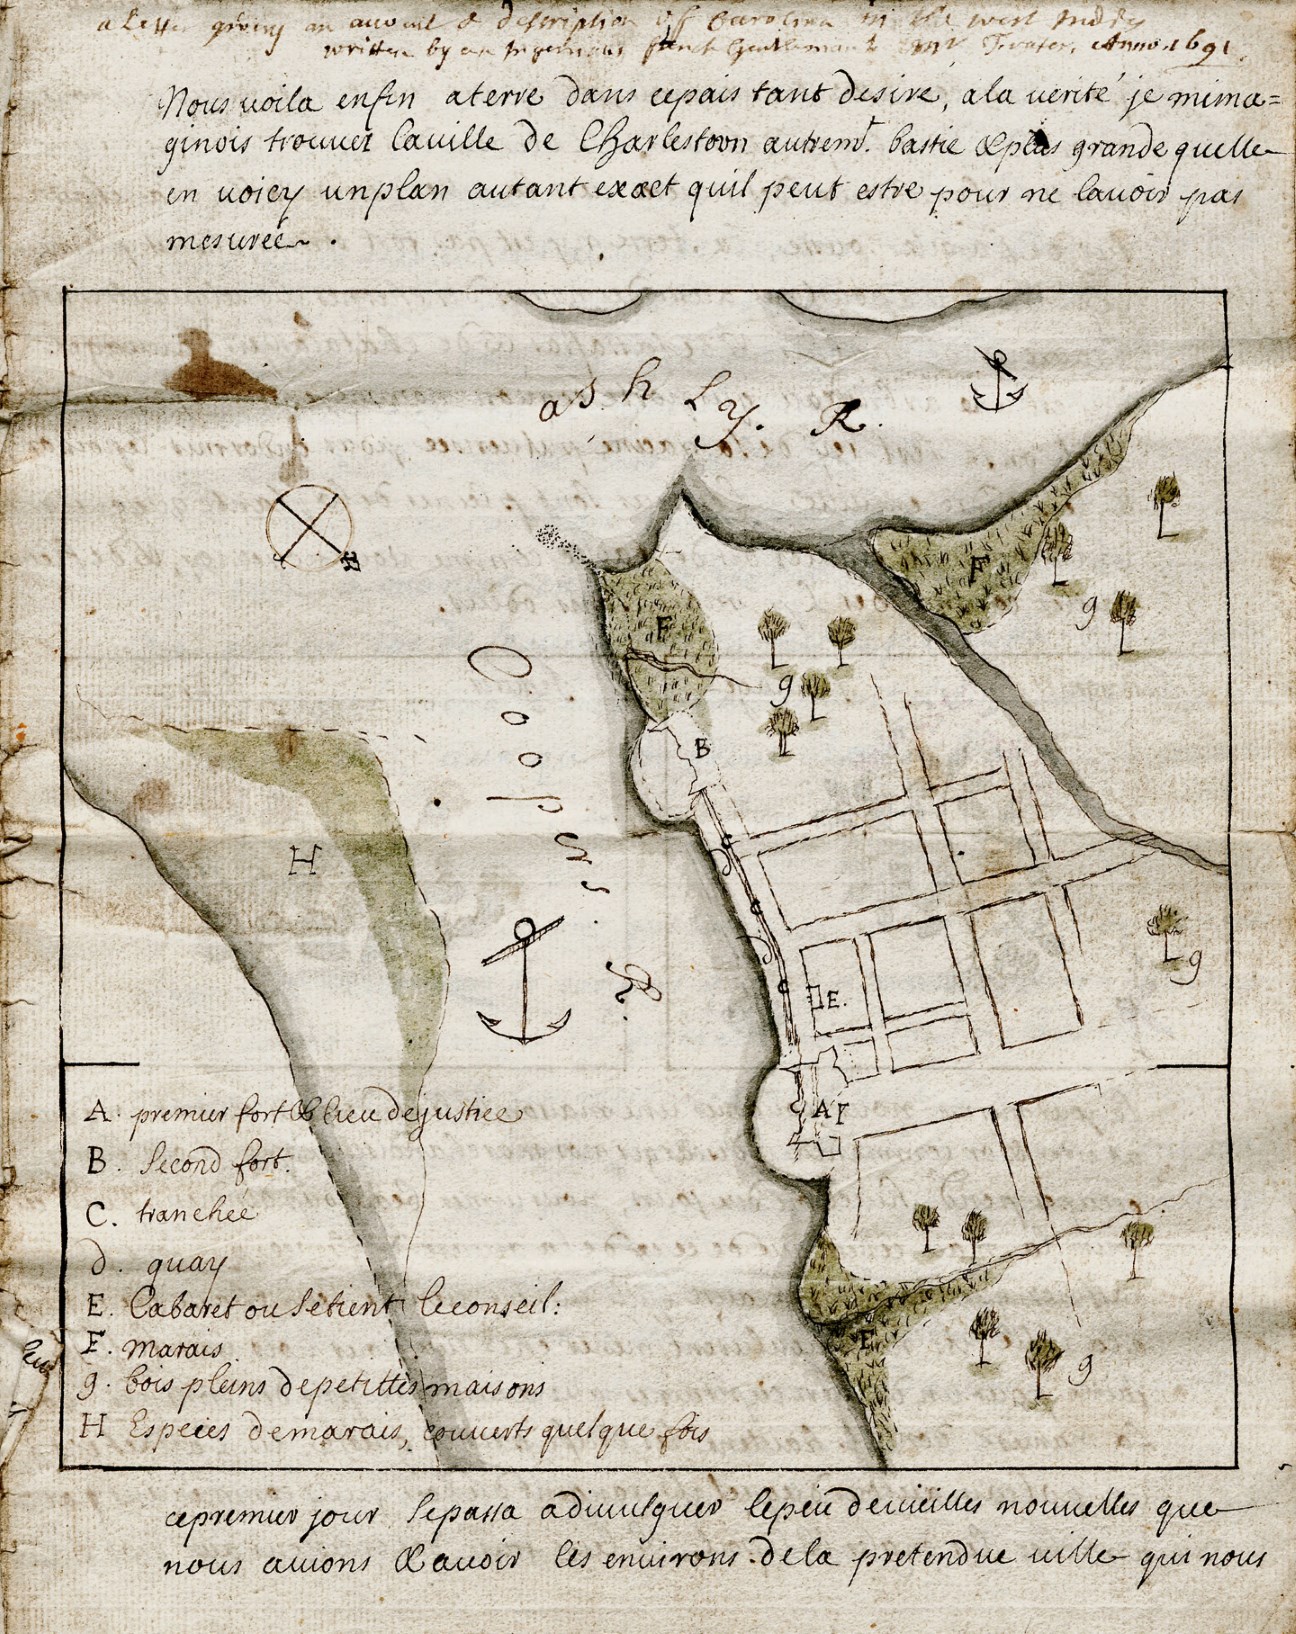 a Letter giving an account & description off Carolina in the west Indies
written by an Ingenious french Gentleman to Mr. Anno. 1691.
Nous voila enfin a terre dans ce pais tant desiré, a la verité je mima=
ginois trouver la ville de Charlestown autremt. bastie & plus grande quelle
en voicy un plan autant exact quil peut estre pour ne lavoir pas
mesureé.
ashly. R.
N
F
F
g
g
Coopers. R.
B
C
d
C
H
d
g
C
E.
A
F
g
A. premier fort & lieu de justice
B. Second fort.
C. tranchée
d. quay
E. Cabaret ou se tient le conseil:
F. marais
g. bois pleins de petittes maisons
H Especes de marais, couverts quelque fois
ce premier jour se passa a divulguer le peu de vieilles nouvelles que
nous avions & a voir les environs de la pretendue ville qui nous